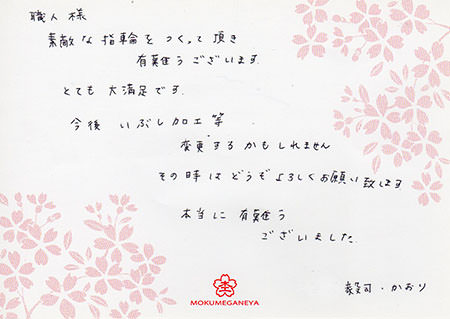 職人様
素敵な指輪をつくって頂き
有難うございます.
とても大満足です.
今後いぶし加工等
変更するかもしれません
その時はどうぞよろしくお願い致します
本当に有難う
ございました.
毅司・かおり
MOKUMEGANEYA